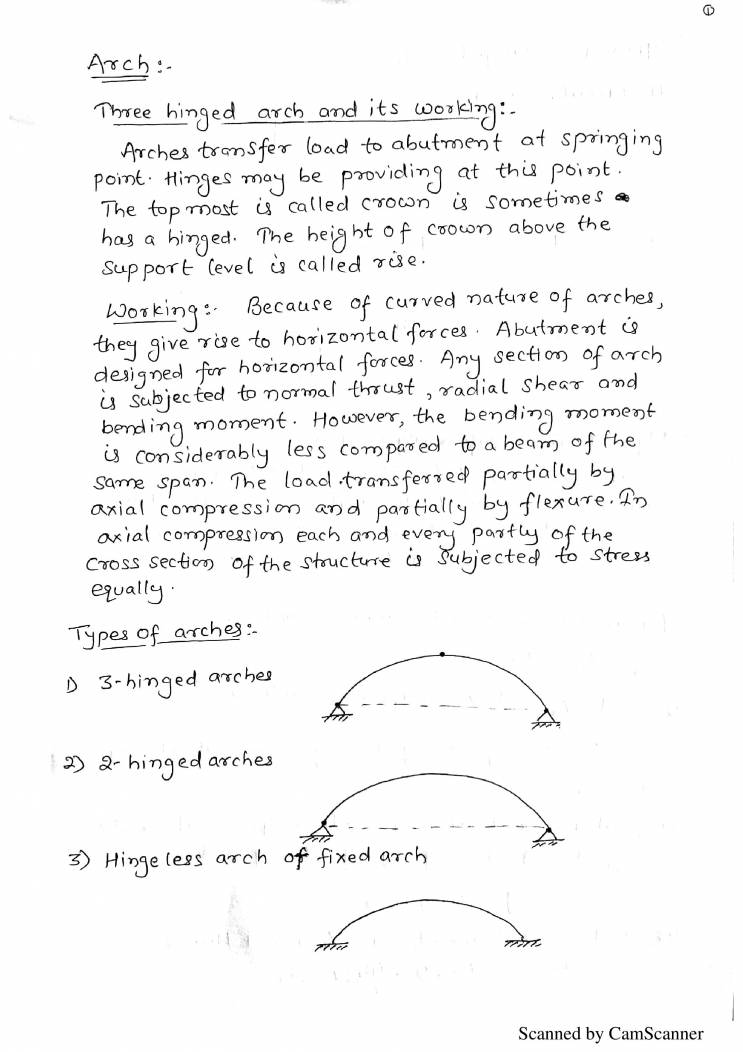 ①
Arch :-
Three hinged arch and its working:-
Arches transfer load to abutment at springing
point. Hinges may be providing at this point.
The top most is called crown is sometimes
has a hinged. The height of crown above the
support level is called rise.
Working:- Because of curved nature of arches,
they give rise to horizontal forces. Abutment is
designed for horizontal forces. Any section of arch
is subjected to normal thrust, radial shear and
bending moment. However, the bending moment
is considerably less compared to a beam of the
same span. The load transferred partially by
axial compression and partially by flexure. In
axial compression each and every partly of the
cross section of the structure is subjected to stress
equally.
Types of arches:-
1) 3-hinged arches
2) 2-hinged arches
3) Hingeless arch of fixed arch
Scanned by CamScanner